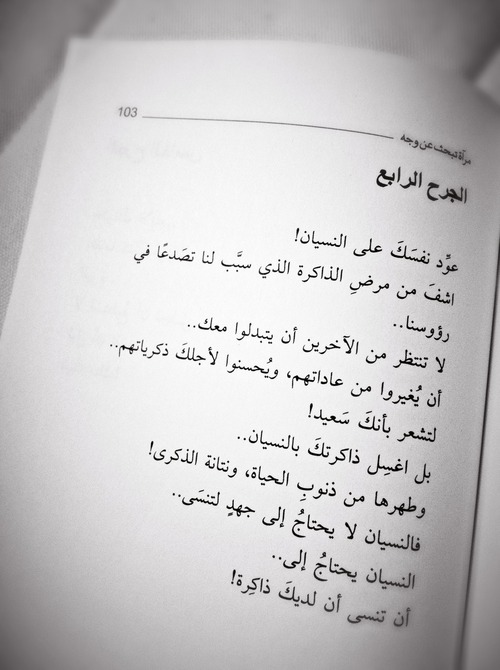 مرآة تبحث عن وجه 103
الجرح الرابع
عوِّد نفسَكَ على النسيان!
اشفَ من مرضِ الذاكرة الذي سبَّب لنا تصَدعًا في
رؤوسنا..
لا تنتظر من الآخرين أن يتبدلوا معك..
أن يُغيروا من عاداتهم، ويُحسنوا لأجلكَ ذكرياتهم..
لتشعر بأنكَ سَعيد!
بل اغسِل ذاكرتكَ بالنسيان..
وطهرها من ذنوبِ الحياة، ونتانة الذكرى!
فالنسيان لا يحتاجُ إلى جهدٍ لتنسَى..
النسيان يحتاجُ إلى..
أن تنسى أن لديكَ ذاكِرة!